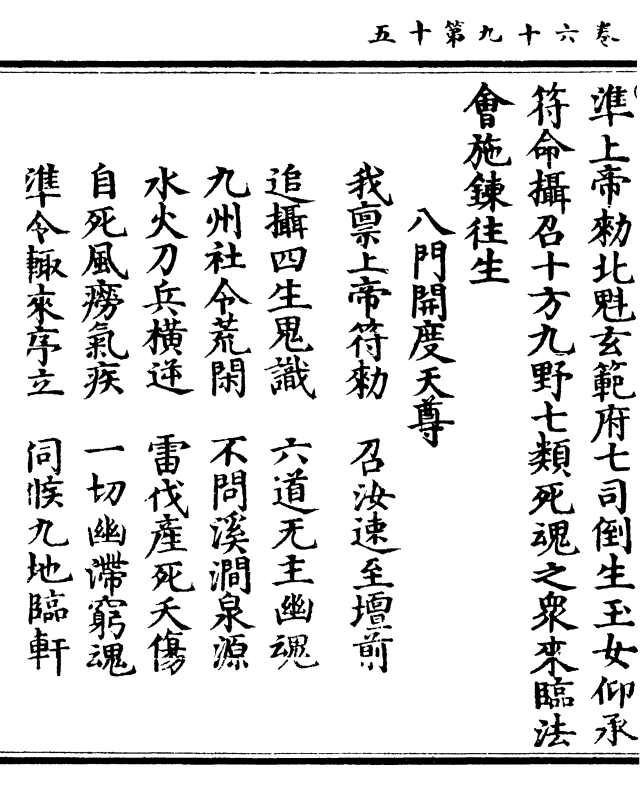 卷六十九第十五
準上帝勑北魁玄範府七司倒生玉女仰承
符命攝召十方九野七類死魂之衆來臨法
會施鍊往生
八門開度天尊
我禀上帝符勑　召汝速至壇前
追攝四生鬼識　六道无主幽魂
九州社令荒閑　不問溪澗泉源
水火刀兵橫逆　雷伐產死夭傷
自死風癆氣疾　一切幽滯窮魂
準令輙來序立　伺候九地臨軒